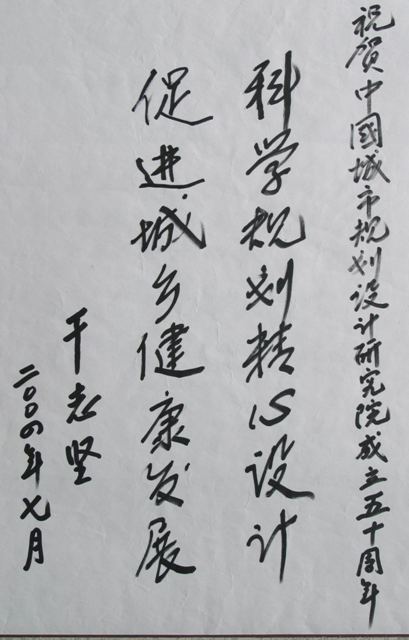 祝贺中國城市规划设计研究院成立五十周年
科学规划精心设计
促进城乡健康发展
干志坚
二〇〇四年七月